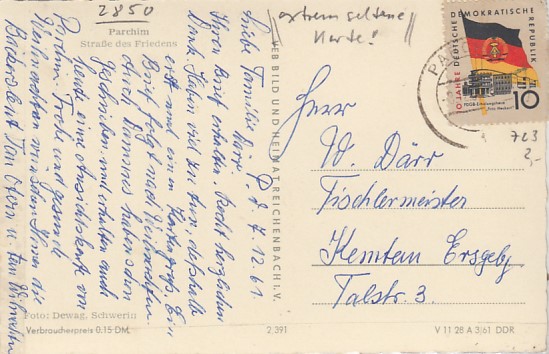 2850
Parchim
Straße des Friedens
extrem seltene
Karte!
P. d. 7.12.61
Liebe Familie
Ihren Brief erhalten. Recht herzlichen
Dank. Haben viel zu tun, deshalb
erst mal ein Kartengruß. Ein
Brief folgt nach Weihnachten
doch haben
Geschrieben und erhalten auch
heute eine Ansichtskarte von
Parchim. Frohe und gesunde
Weihnachten wünschen Ihnen die
VEB BILD UND HEIMAT REICHENBACH I. V.
10 JAHRE DEUTSCHE DEMOKRATISCHE REPUBLIK
FDGB-Erholungsheim
"Fritz Heckert"
10
723
2,-
Herr
W. Därr
Tischlermeister
Kemtau Erzgeb.
Talstr. 3.
Foto: Dewag, Schwerin
Verbraucherpreis 0,15 DM
2 391
V 11 28 A 3/61 DDR